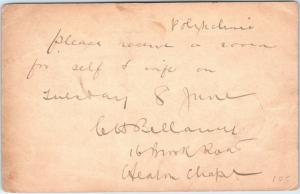 Polyknino
please reserve a room
for self & wife on
Tuesday 8 June
CH Bellamy
16 Brook Road
Heaton Chapel